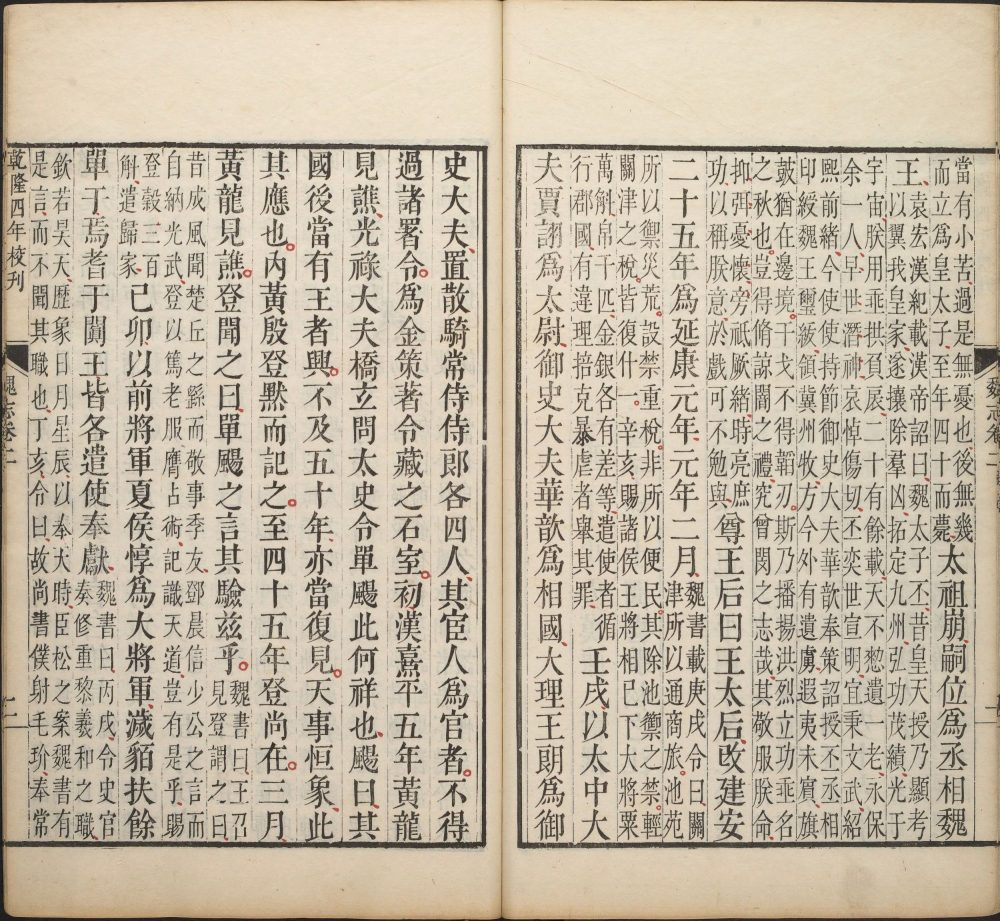 當有小苦過是無憂也後無幾
而立爲皇太子至年四十而薨
太祖崩嗣位爲丞相魏
王
袁宏漢紀載漢帝詔曰魏太子丕昔皇天授乃顯考
以翼我皇家遂攘除羣凶拓定九州弘功茂績光于
宇宙朕用垂拱負扆二十有餘載天不憖遺一老永保
余一人早世潛神哀悼傷切丕奕世宣明宜秉文武紹
熙前緒今使使持節御史大夫華歆奉策詔授丕丞相
印綬魏王璽紱領冀州牧方今外有遺虜遐夷未賓旗
鼓猶在邊境干戈不得韜刃斯乃播揚洪烈立功垂名
之秋也豈得脩諒闇之禮究曾閔之志哉其敬服朕命
抑弭憂懷旁祗厥緒時亮庶
功以稱朕意於戲可不勉與
尊王后曰王太后改建安
二十五年爲延康元年元年二月
魏書載庚戌令曰關
津所以通商旅池苑
所以禦災荒設禁重稅非所以便民其除池籞之禁輕
關津之稅皆復什一辛亥賜諸侯王將相已下大將粟
萬斛帛千匹金銀各有差等遣使者循
行郡國有違理掊克暴虐者舉其罪
壬戌以太中大
夫賈詡爲太尉御史大夫華歆爲相國大理王朗爲御
史大夫置散騎常侍侍郎各四人其宦人爲官者不得
過諸署令爲金策著令藏之石室初漢熹平五年黃龍
見譙光祿大夫橋玄問太史令單颺此何祥也颺曰其
國後當有王者興不及五十年亦當復見天事恒象此
其應也內黃殷登默而記之至四十五年登尚在三月
黃龍見譙登聞之曰單颺之言其驗茲乎
魏書曰王召
見登謂之曰
昔成風聞楚丘之繇而敬事季友鄧晨信少公之言而
自納光武登以篤老服膺占術記識天道豈有是乎賜
登穀三百
斛遣歸家
已卯以前將軍夏侯惇爲大將軍濊貊扶餘
單于焉耆于闐王皆各遣使奉獻
魏書曰丙戌令史官
奏修重黎羲和之職
欽若昊天歷象日月星辰以奉天時臣松之案魏書有
是言而不聞其職也丁亥令曰故尚書僕射毛玠奉常
乾隆四年校刊
魏志卷二